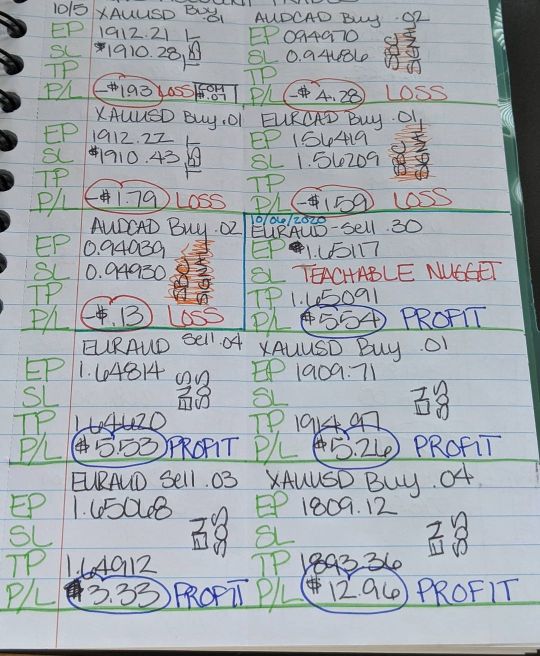 10/5 XAUUSD Buy .01
EP 1912.21
SL $1910.28 TEST
TP
P/L -$1.93 LOSS COM $.07
AUDCAD Buy .02
EP 0.94970
SL 0.94686 SBC SIGNAL
TP
P/L -$4.28 LOSS
XAUUSD Buy .01
EP 1912.22
SL $1910.43 TEST
TP
P/L -$1.79 LOSS
EURCAD Buy .01
EP 1.56419
SL 1.56209 SBC SIGNAL
TP
P/L -$1.59 LOSS
AUDCAD Buy .02
EP 0.94939
SL 0.94930 SBC SIGNAL
TP
P/L -$.13 LOSS
10/06/2020
EURAUD - Sell .30
EP $1.65117
SL TEACHABLE NUGGET
TP 1.65091
P/L $5.54 PROFIT
EURAUD Sell .04
EP 1.64814
SL
TP 1.64620
P/L $5.53 PROFIT
XAUUSD Buy .01
EP 1909.71
SL
TP 1914.97
P/L $5.26 PROFIT
EURAUD Sell .03
EP 1.65068
SL
TP 1.64912
P/L $3.33 PROFIT
XAUUSD Buy .04
EP 1809.12
SL
TP 1893.36
P/L $12.96 PROFIT